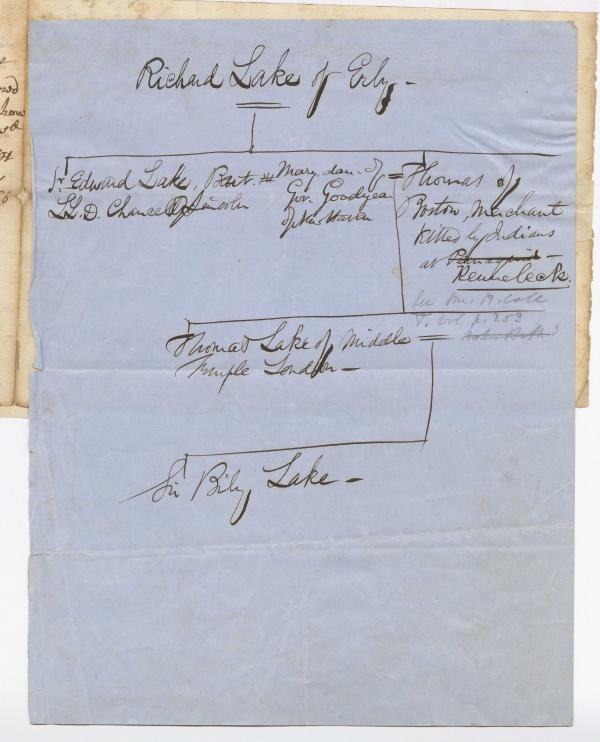 Richard Lake of Erby -
Sr Edward Lake, Bart.
LL.D. Chancel of Lincoln
Mary, dau. of =
Gov. Goodyear
of New Haven
Thomas of
Boston, Merchant
Killed by Indians
at Pemaquid -
Kennebeck.
See
Vol. p. 253
Thomas Lake of Middle =
Temple London -
Sir Biby Lake -